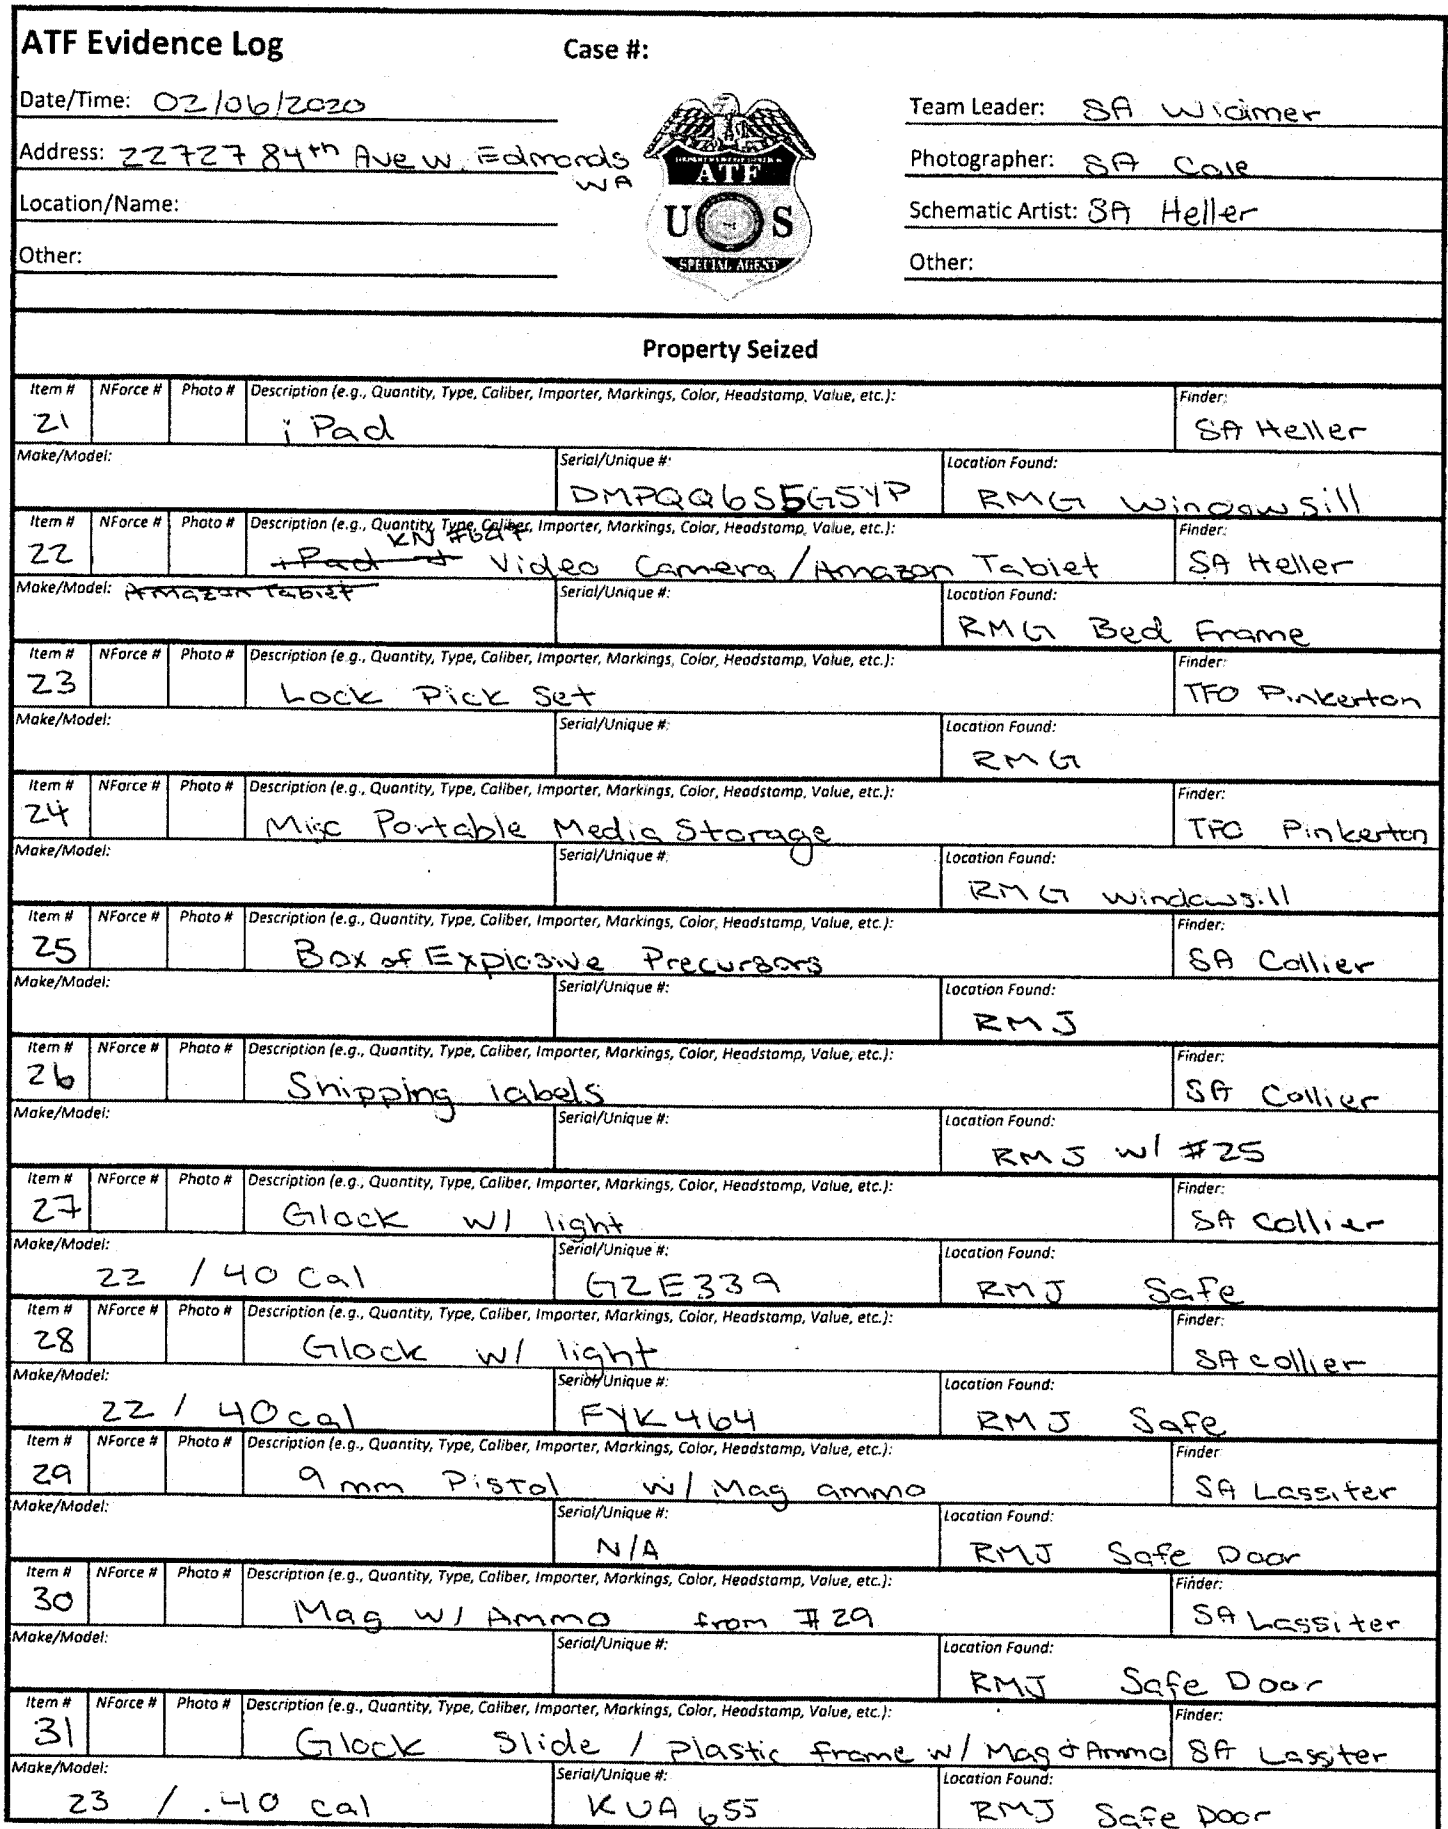 ATF Evidence Log Case #:
Date/Time: 02/06/2020
Address: 22727 84th Ave W. Edmonds
WA
Location/Name:
Other:
ATF
U S
SPECIAL AGENT
Team Leader: SA Widmer
Photographer: SA Cole
Schematic Artist: SA Heller
Other:
Property Seized
Item # NForce # Photo # Description (e.g., Quantity, Type, Caliber, Importer, Markings, Color, Headstamp, Value, etc.): Finder:
21 iPad SA Heller
Make/Model: Serial/Unique #: Location Found:
DMPQQ6S5G5YP RMG Windowsill
Item # NForce # Photo # Description (e.g., Quantity, Type, Caliber, Importer, Markings, Color, Headstamp, Value, etc.): Finder:
22 iPad Video Camera/Amazon Tablet SA Heller
Make/Model: Amazon Tablet Serial/Unique #: Location Found:
RMG Bed Frame
Item # NForce # Photo # Description (e.g., Quantity, Type, Caliber, Importer, Markings, Color, Headstamp, Value, etc.): Finder:
23 Lock Pick Set TFO Pinkerton
Make/Model: Serial/Unique #: Location Found:
RMG
Item # NForce # Photo # Description (e.g., Quantity, Type, Caliber, Importer, Markings, Color, Headstamp, Value, etc.): Finder:
24 Misc Portable Media Storage TFO Pinkerton
Make/Model: Serial/Unique #: Location Found:
RMG Windowsill
Item # NForce # Photo # Description (e.g., Quantity, Type, Caliber, Importer, Markings, Color, Headstamp, Value, etc.): Finder:
25 Box of Explosive Precursors SA Collier
Make/Model: Serial/Unique #: Location Found:
RMJ
Item # NForce # Photo # Description (e.g., Quantity, Type, Caliber, Importer, Markings, Color, Headstamp, Value, etc.): Finder:
26 Shipping labels SA Collier
Make/Model: Serial/Unique #: Location Found:
RMJ w/ #25
Item # NForce # Photo # Description (e.g., Quantity, Type, Caliber, Importer, Markings, Color, Headstamp, Value, etc.): Finder:
27 Glock w/ light SA Collier
Make/Model: Serial/Unique #: Location Found:
22 / 40 Cal GZE339 RMJ Safe
Item # NForce # Photo # Description (e.g., Quantity, Type, Caliber, Importer, Markings, Color, Headstamp, Value, etc.): Finder:
28 Glock w/ light SA Collier
Make/Model: Serial/Unique #: Location Found:
22 / 40 cal FYK464 RMJ Safe
Item # NForce # Photo # Description (e.g., Quantity, Type, Caliber, Importer, Markings, Color, Headstamp, Value, etc.): Finder
29 9mm Pistol w/ Mag ammo SA Lassiter
Make/Model: Serial/Unique #: Location Found:
N/A RMJ Safe Door
Item # NForce # Photo # Description (e.g., Quantity, Type, Caliber, Importer, Markings, Color, Headstamp, Value, etc.): Finder:
30 Mag w/ Ammo from #29 SA Lassiter
Make/Model: Serial/Unique #: Location Found:
RMJ Safe Door
Item # NForce # Photo # Description (e.g., Quantity, Type, Caliber, Importer, Markings, Color, Headstamp, Value, etc.): Finder:
31 Glock Slide / plastic frame w/ Mag & Ammo SA Lassiter
Make/Model: Serial/Unique #: Location Found:
23 / .40 cal KUA655 RMJ Safe Door